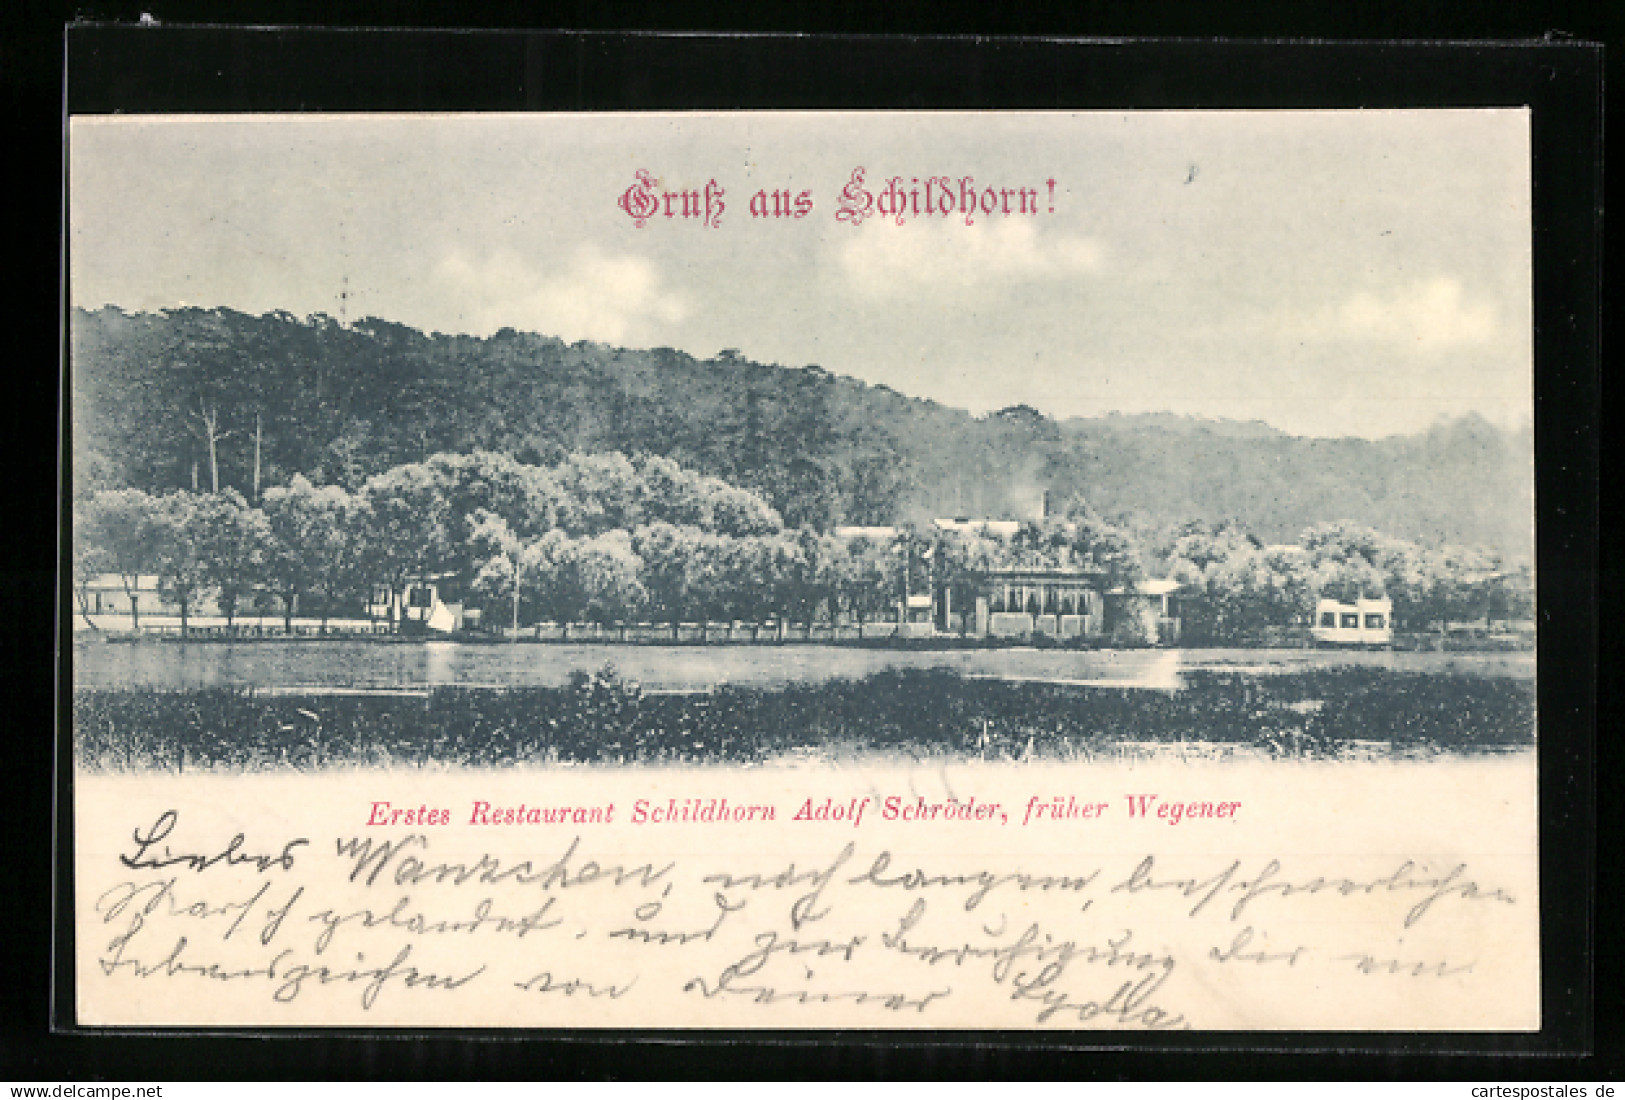 Gruß aus Schildhorn!
Erstes Restaurant Schildhorn Adolf Schröder, früher Wegener
Liebes Wänzchen, nach langem, beschwerlichen
Marsch gelandet, und zur Beruhigung Dir ein
Lebenszeichen von Deiner Lydia.
hosted on DELCAMPE.NET
cartespostales de